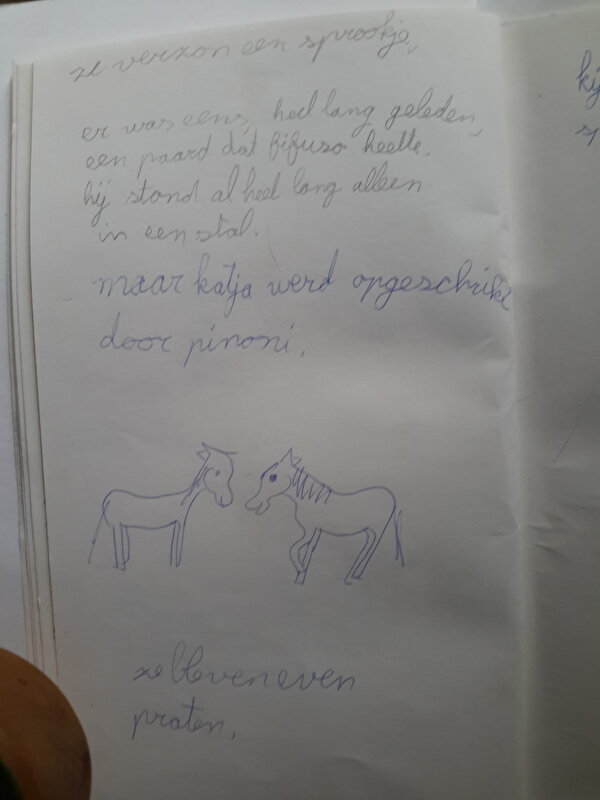 ze verzon een sprookje,
er was eens, heel lang geleden,
een paard dat fifuso heette.
hij stond al heel lang alleen
in een stal.
maar katja werd opgeschrikt
door pinoni,
ze bleven even
praten,